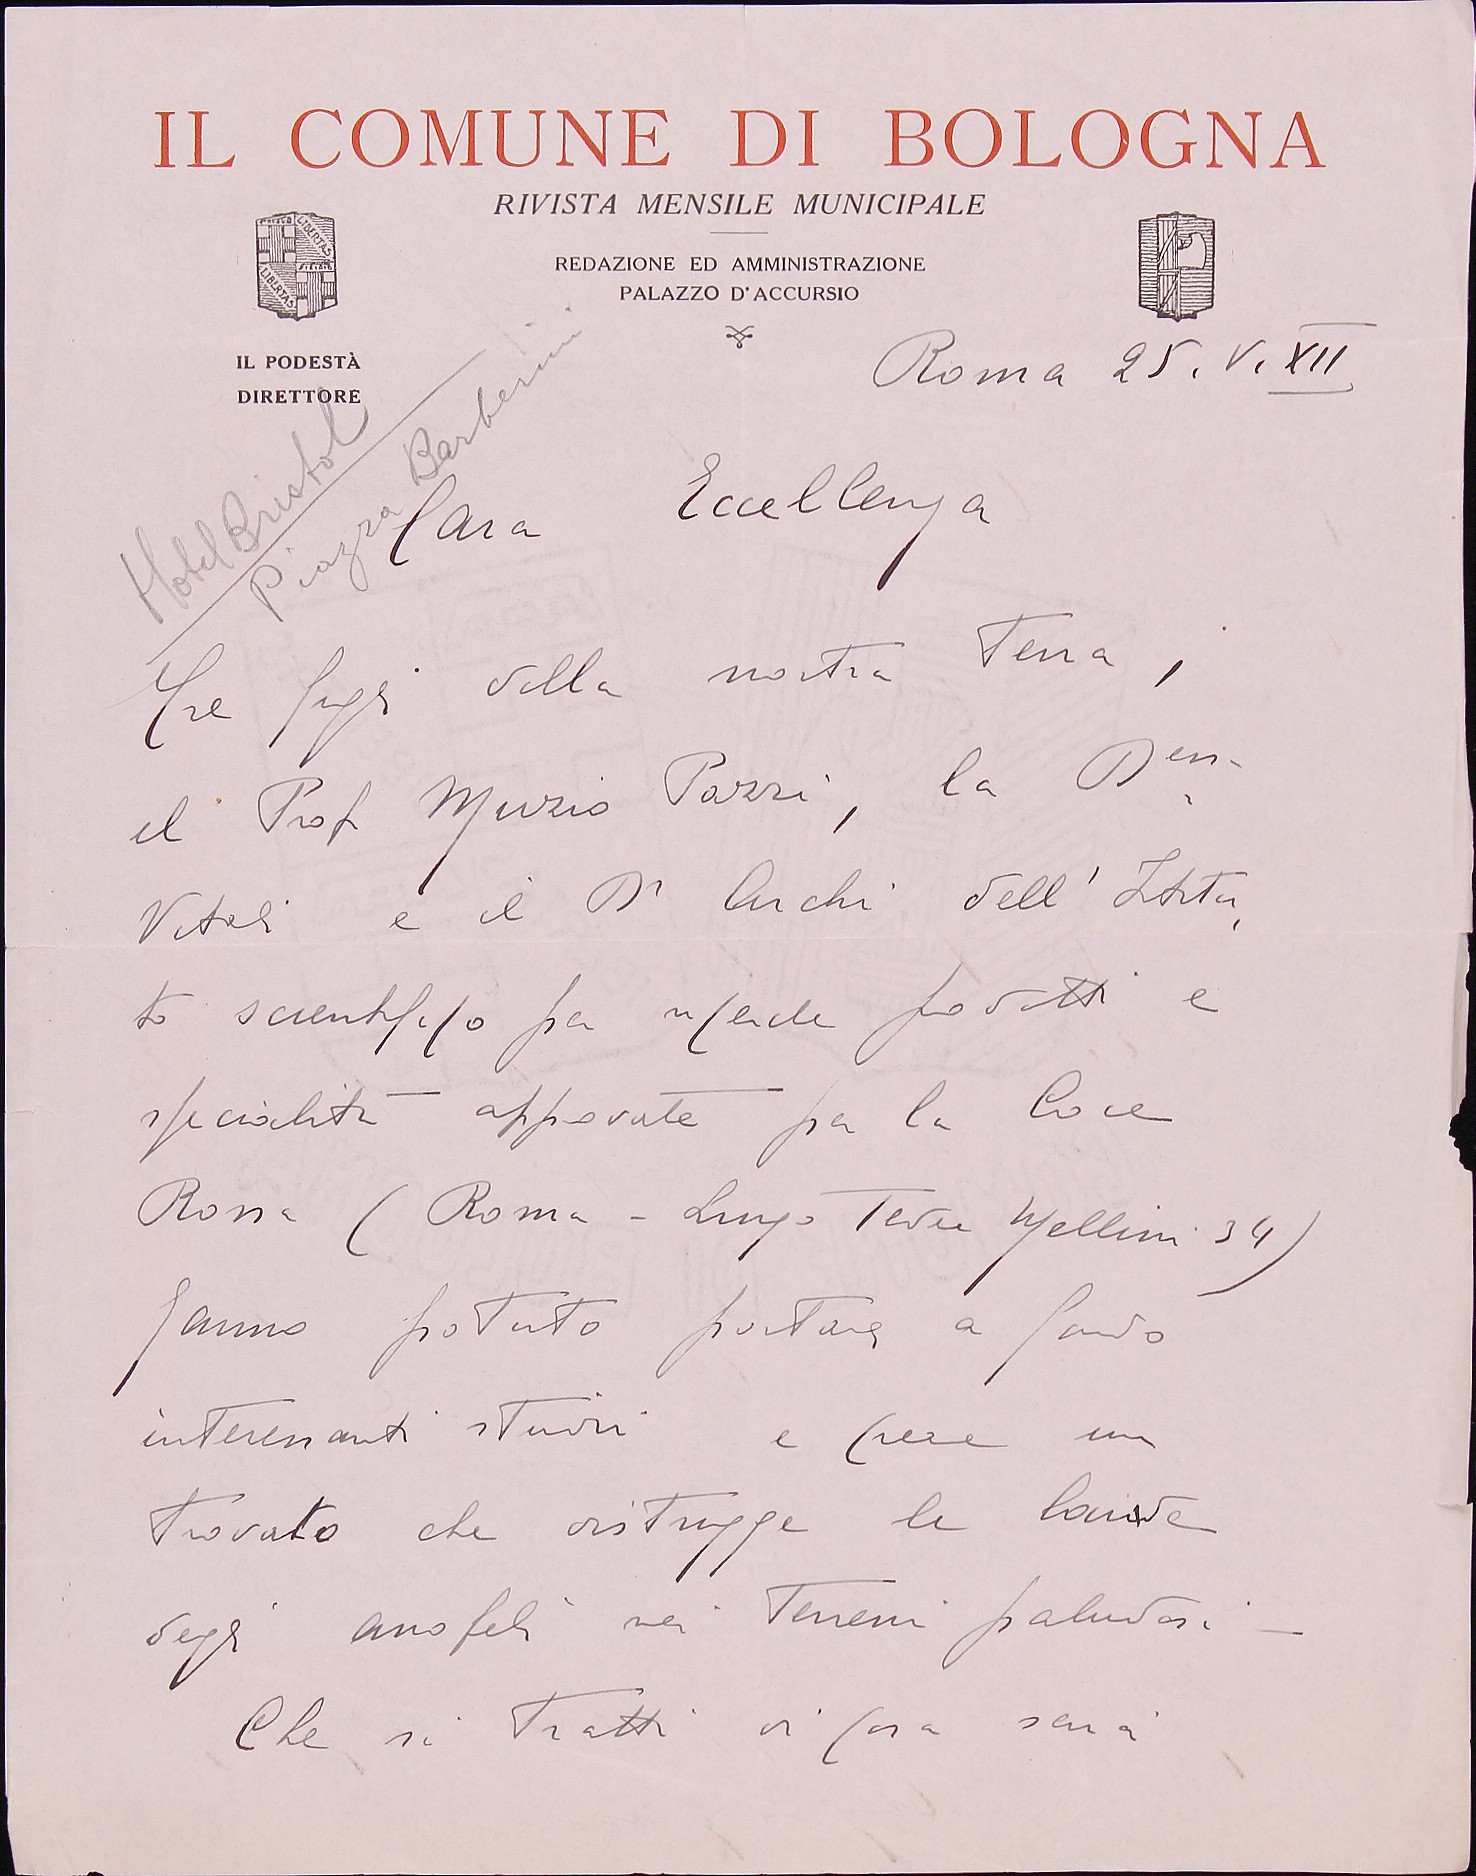 IL COMUNE DI BOLOGNA
RIVISTA MENSILE MUNICIPALE
REDAZIONE ED AMMINISTRAZIONE
PALAZZO D'ACCURSIO
LIBERTAS
LIBERTAS
IL PODESTÀ
DIRETTORE
Roma 25. V. XII
Hotel Bristol
Piazza Barberini
Cara Eccellenza
Tre figli della nostra Terra,
il Prof Muzio Pazzi, la
Vitali e il Dr Archi dell' Istitu
to scientifico per ricerche prodotti e
specialità approvate per la Croce
Rossa ( Roma - Lungo Tevere Mellini 34)
hanno potuto portare a fondo
interessanti studii e creare un
trovato che distrugge le larve
degli anofeli nei Terreni paludosi -
Che si tratti di cosa seria